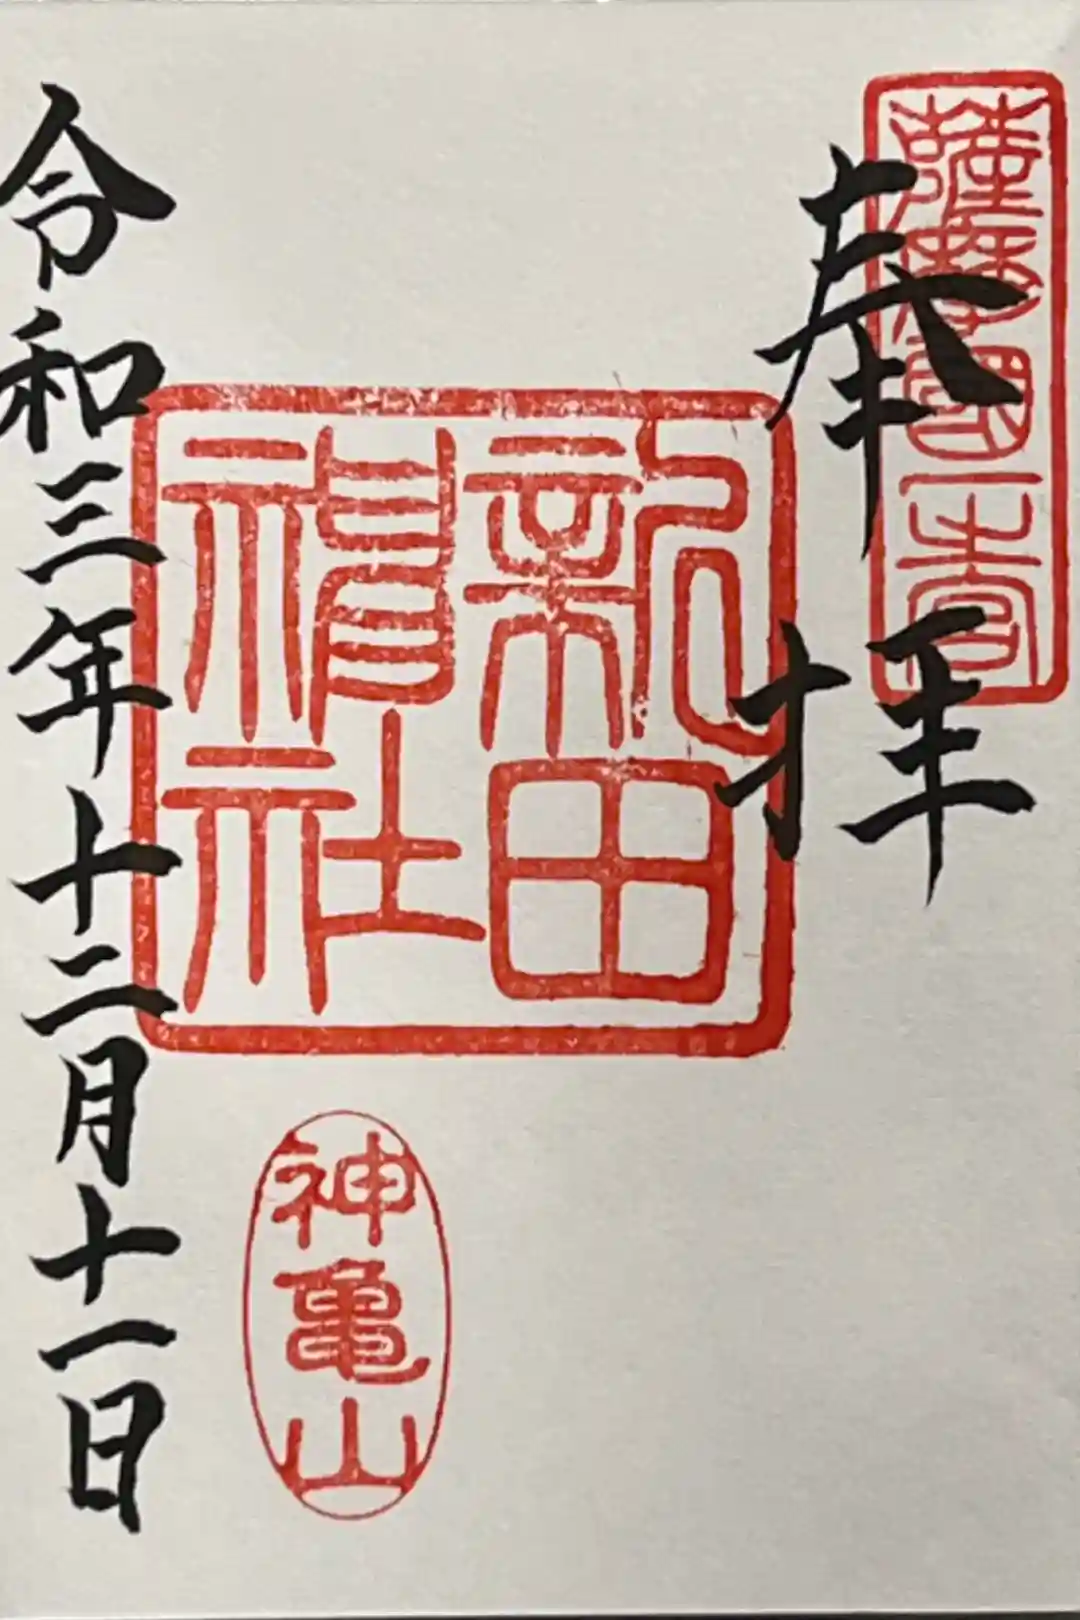 薩摩國一宮
奉拝
新田
神社
神亀山
令和三年十二月十一日